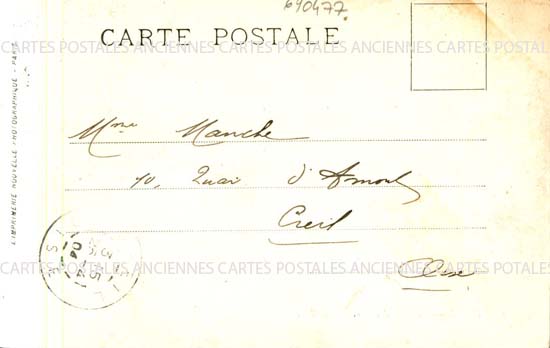 690477.
CARTE POSTALE
CARTES POSTALES ANCIENNES CARTES POSTALES ANCIENNES CARTES POSTALES
Mme Manche
10, Quai d'Amont
Creil
CARTES POSTALES ANCIENNES CARTES POSTALES ANCIENNES CARTES POSTALES
Oise
IMPRIMERIE NOUVELLE PHOTOGRAPHIQUE - PARIS